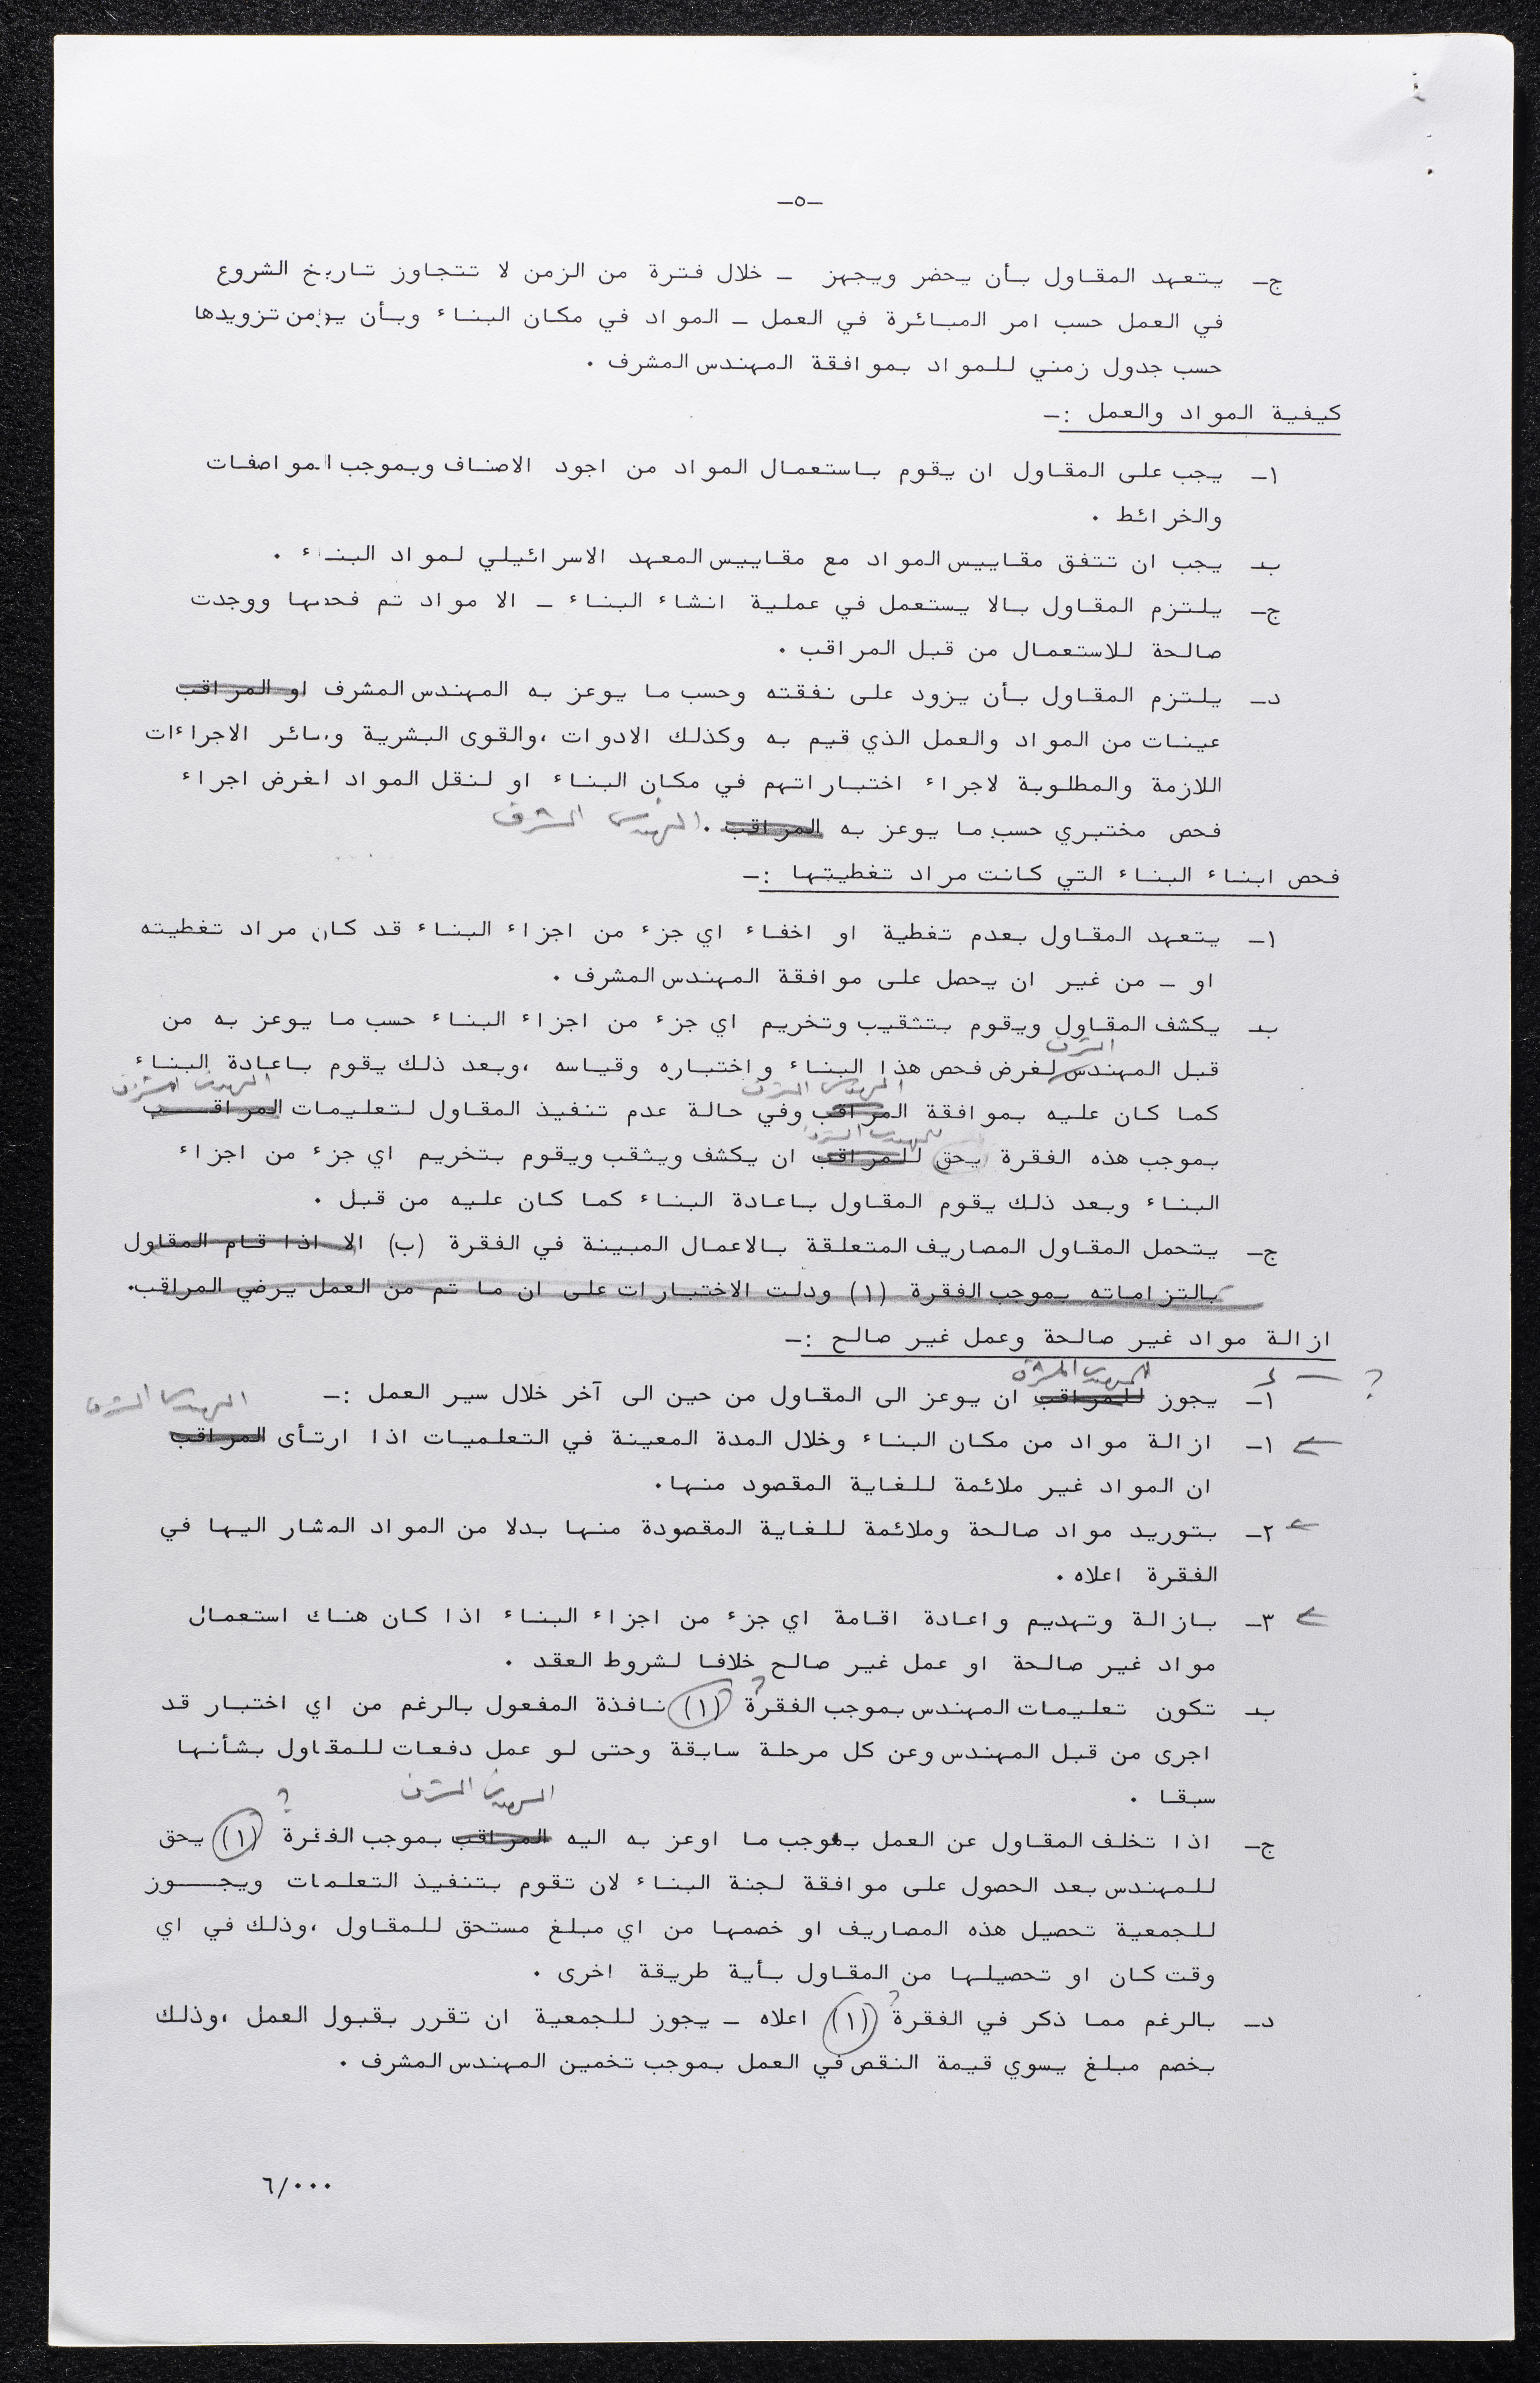 -٥-
ج- يتعهد المقاول بأن يحضر ويجهز - خلال فترة من الزمن لا تتجاوز تاريخ الشروع
في العمل حسب امر المباشرة في العمل - المواد في مكان البناء وبأن يؤمن تزويدها
حسب جدول زمني للمواد بموافقة المهندس المشرف .
كيفية المواد والعمل :-
١- يجب على المقاول ان يقوم باستعمال المواد من اجود الاصناف وبموجب المواصفات
والخرائط .
ب- يجب ان تتفق مقاييس المواد مع مقاييس المعهد الاسرائيلي لمواد البناء .
ج- يلتزم المقاول بالا يستعمل في عملية انشاء البناء - الا مواد تم فحصها ووجدت
صالحة للاستعمال من قبل المراقب .
د- يلتزم المقاول بأن يزود على نفقته وحسب ما يوعز به المهندس المشرف او المراقب
عينات من المواد والعمل الذي قيم به وكذلك الادوات ،والقوى البشرية وسائر الاجراءات
اللازمة والمطلوبة لاجراء اختباراتهم في مكان البناء او لنقل المواد لغرض اجراء
فحص مختبري حسب ما يوعز به المراقب . المهندس المشرف
فحص ابناء البناء التي كانت مراد تغطيتها :-
١- يتعهد المقاول بعدم تغطية او اخفاء اي جزء من اجزاء البناء قد كان مراد تغطيته
او - من غير ان يحصل على موافقة المهندس المشرف .
ب- يكشف المقاول ويقوم بتثقيب وتخريم اي جزء من اجزاء البناء حسب ما يوعز به من
المشرف
قبل المهندس لغرض فحص هذا البناء واختباره وقياسه ،وبعد ذلك يقوم باعادة البناء
المهندس المشرف المهندس المشرف
كما كان عليه بموافقة المراقب وفي حالة عدم تنفيذ المقاول لتعليمات المراقب
للمهندس المشرف
بموجب هذه الفقرة يحق للمراقب ان يكشف ويثقب ويقوم بتخريم اي جزء من اجزاء
البناء وبعد ذلك يقوم المقاول باعادة البناء كما كان عليه من قبل .
ج- يتحمل المقاول المصاريف المتعلقة بالاعمال المبينة في الفقرة (ب) الا اذا قام المقاول
بالتزاماته بموجب الفقرة (١) ودلت الاختبارات على ان ما تم من العمل يرضي المراقب.
ازالة مواد غير صالحة وعمل غير صالح :-
للمهندس المشرف ؟
١- يجوز للمراقب ان يوعز الى المقاول من حين الى آخر خلال سير العمل :- المهندس المشرف
١- ازالة مواد من مكان البناء وخلال المدة المعينة في التعلميات اذا ارتأى المراقب
ان المواد غير ملائمة للغاية المقصود منها.
٢- بتوريد مواد صالحة وملائمة للغاية المقصودة منها بدلا من المواد المشار اليها في
الفقرة اعلاه .
٣- بازالة وتهديم واعادة اقامة اي جزء من اجزاء البناء اذا كان هناك استعمال
مواد غير صالحة او عمل غير صالح خلافا لشروط العقد .
ب- تكون تعليمات المهندس بموجب الفقرة ؟ (١) نافذة المفعول بالرغم من اي اختبار قد
اجرى من قبل المهندس وعن كل مرحلة سابقة وحتى لو عمل دفعات للمقاول بشأنها
سبقا .
المهندس المشرف ؟
ج- اذا تخلف المقاول عن العمل بموجب ما اوعز به اليه المراقب بموجب الفقرة (١) يحق
للمهندس بعد الحصول على موافقة لجنة البناء لان تقوم بتنفيذ التعلمات ويجوز
للجمعية تحصيل هذه المصاريف او خصمها من اي مبلغ مستحق للمقاول ،وذلك في اي
وقت كان او تحصيلها من المقاول بأية طريقة اخرى .
د- بالرغم مما ذكر في الفقرة ؟ (١) اعلاه - يجوز للجمعية ان تقرر بقبول العمل ،وذلك
بخصم مبلغ يسوي قيمة النقص في العمل بموجب تخمين المهندس المشرف .
٦/٠٠٠